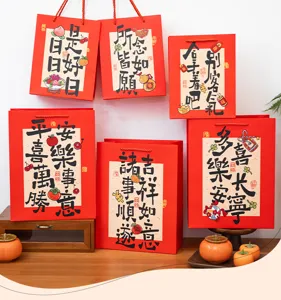 日日
是好日
所念
皆如
願
别客
平安
喜樂
萬事
勝意
吉祥如意
諸事順遂
多喜
樂長
安寧